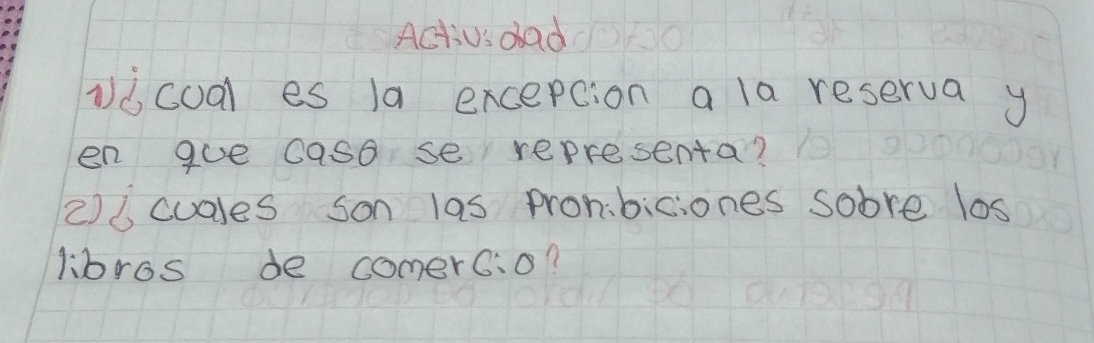 Actividad
1)¿cual es la excepcion a la reserva y
en que caso se representa?
2)¿cuales son las prohibiciones sobre los
libros de comercio?